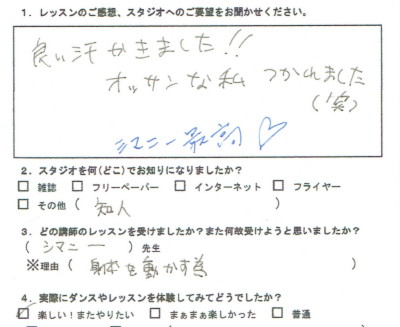 1. レッスンのご感想、スタジオへのご要望をお聞かせください。
良い汗かきました!!
オッサンな私 つかれました
(笑)
シマニー最高♡
2. スタジオを何(どこ)でお知りになりましたか?
□ 雑誌 □ フリーペーパー □ インターネット □ フライヤー
□ その他 ( 知人 )
3. どの講師のレッスンを受けましたか?また何故受けようと思いましたか?
( シマニー ) 先生
※理由 ( 身体を動かす為 )
4. 実際にダンスやレッスンを体験してみてどうでしたか?
☑ 楽しい!またやりたい □ まぁまぁ楽しかった □ 普通